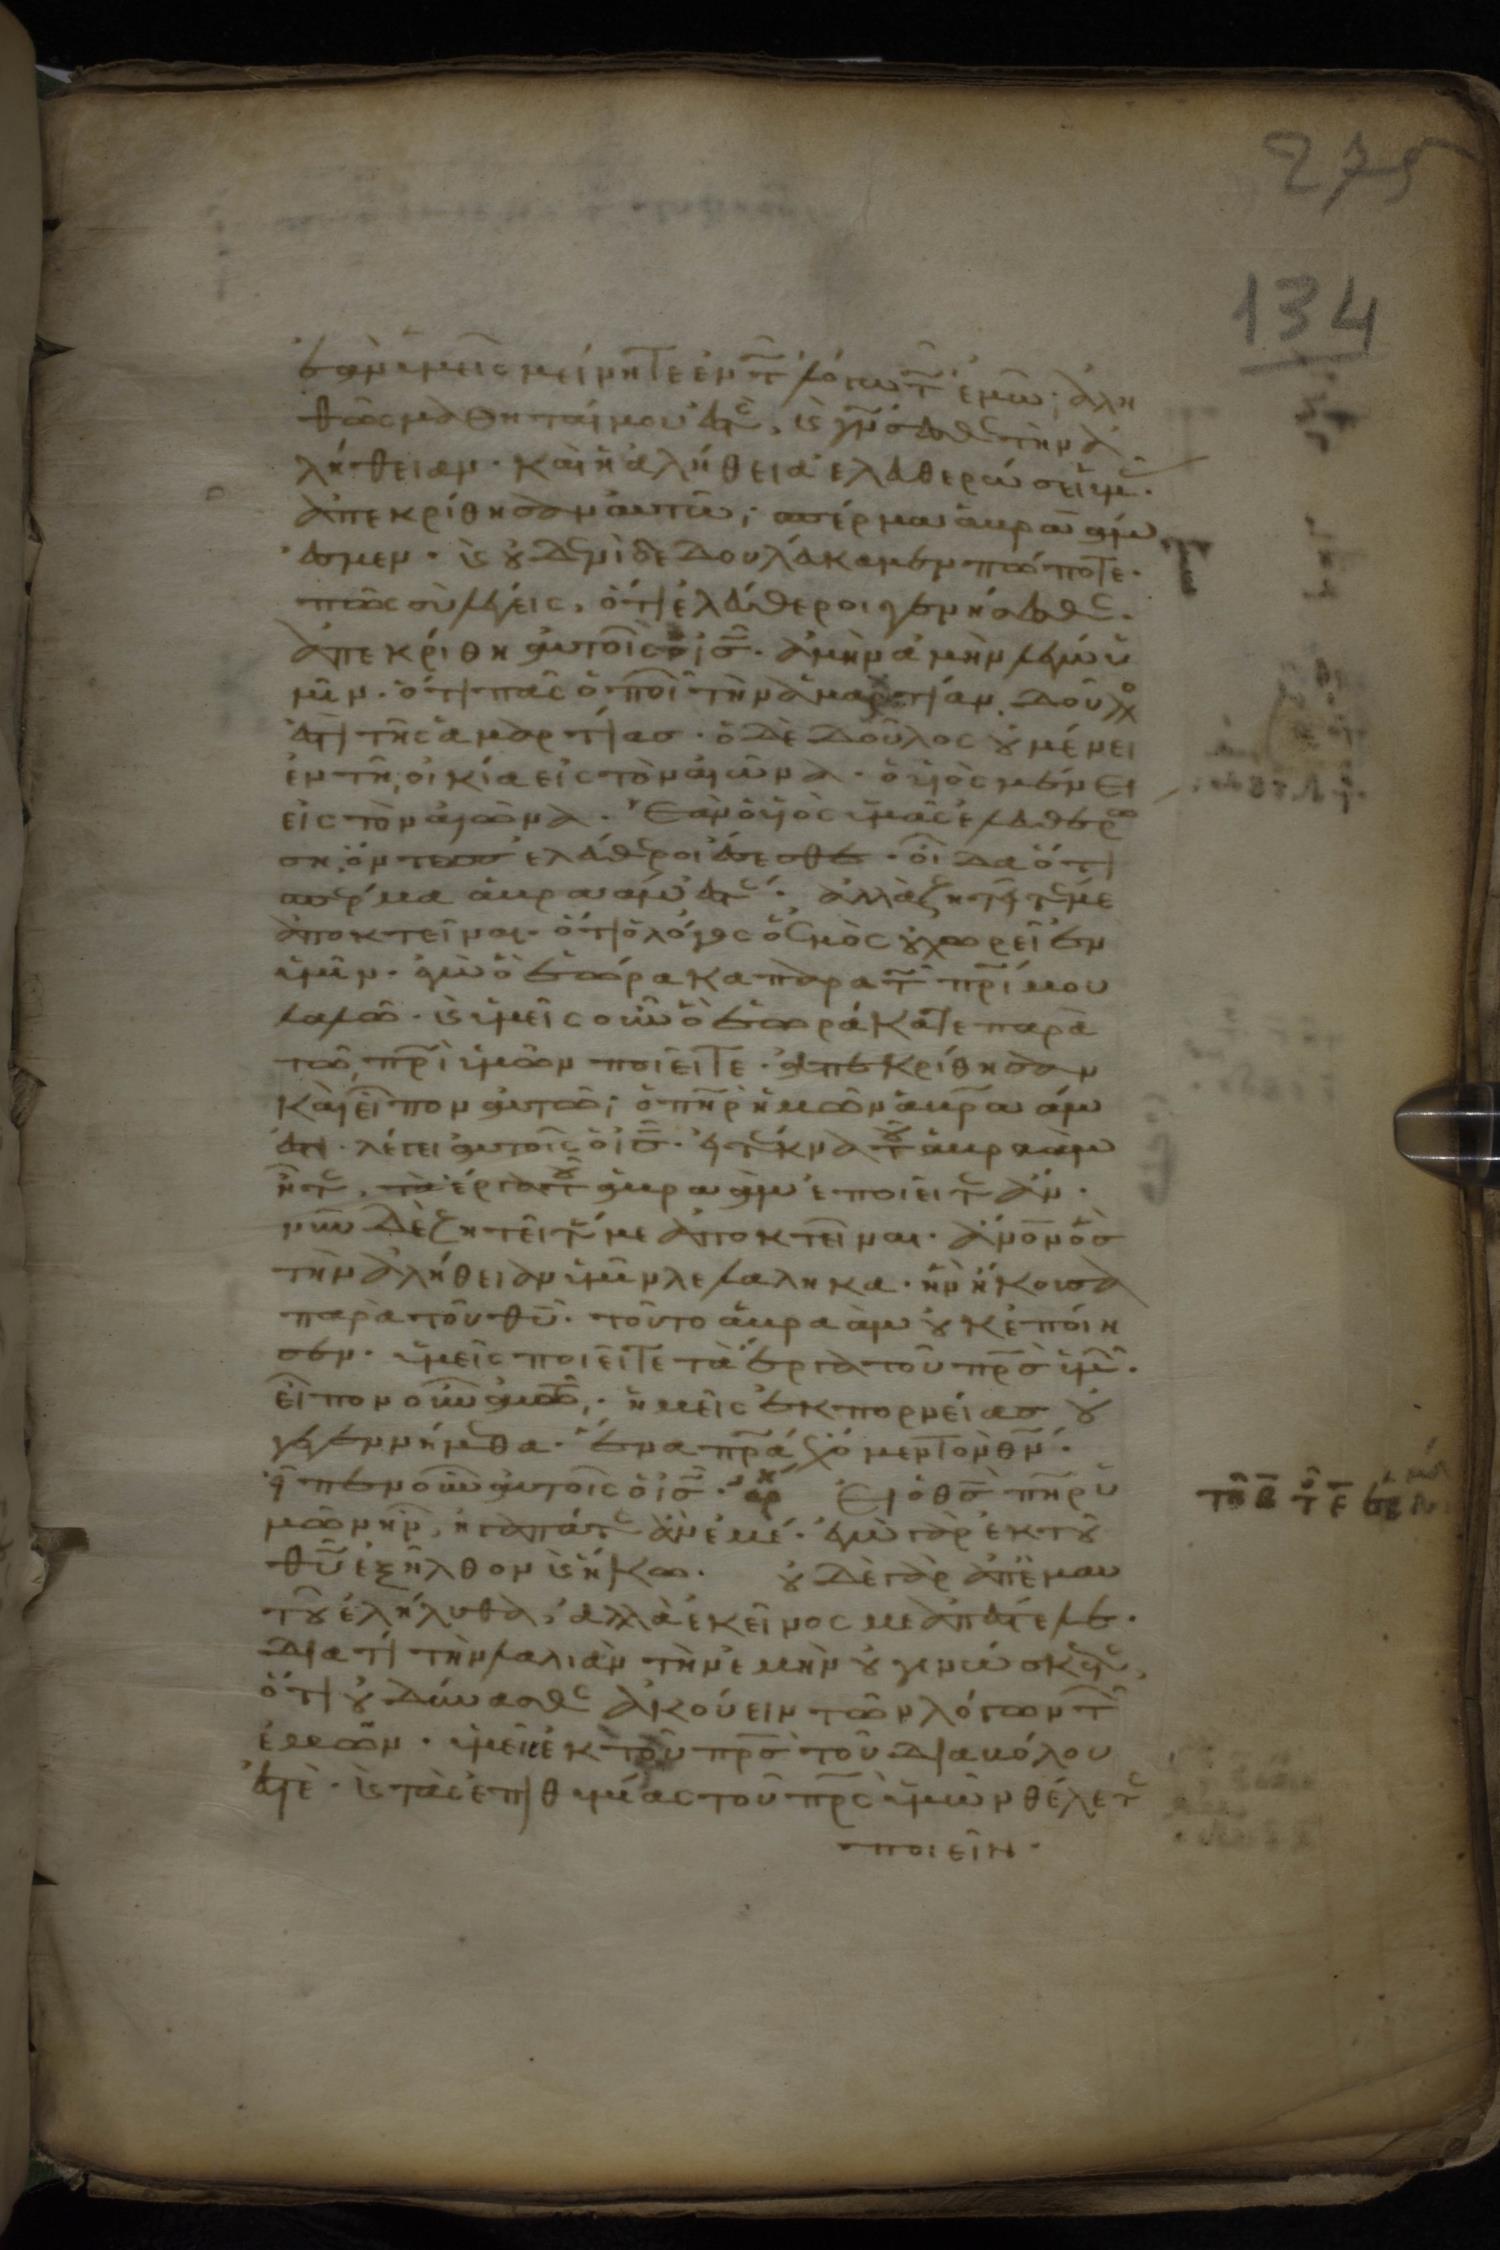 275
134
ἐὰν ὑμεῖς μείνητε ἐν τῶ λόγω τῶ ἐμῶ, ἀλη
θῶς μαθηταί μου ἐστέ, κ γνώσεσθε τὴν ἀ
λήθειαν. καὶ ἡ ἀλήθεια ἐλευθερώσει ὑμᾶς.
ἀπεκρίθησαν αὐτῶ, σπέρμα ἀβραάμ
ἐσμεν. κ οὐδενὶ δεδουλεύκαμεν πώποτε.
πῶς σὺ λέγεις, ὅτι ἐλεύθεροι γενήσεσθε.
ἀπεκρίθη αὐτοῖς ὁ ις. ἀμὴν ἀμὴν λέγω ὑ
μῖν. ὅτι πᾶς ὁ ποιῶν τὴν ἁμαρτίαν, δοῦλος
ἐστι τῆς ἁμαρτίας. ὁ δὲ δοῦλος οὐ μένει
ἐν τῆ οἰκία εἰς τὸν αἰῶνα. ὁ υἱὸς μένει
εἰς τὸν αἰῶνα. Ἐὰν ὁ υἱὸς ὑμᾶς ἐλευθερώ
ση, ὄντως ἐλεύθεροι ἔσεσθε. οἶδα ὅτι
σπέρμα ἀβραάμ ἐστε. ἀλλὰ ζητεῖτέ με
ἀποκτεῖναι. ὅτι ὁ λόγος ὁ ἐμὸς οὐ χωρεῖ ἐν
ὑμῖν. ἐγὼ ὃ ἑώρακα παρὰ τῶ πρί μου
λαλῶ. κ ὑμεῖς οὖν ὃ ἑωράκατε παρὰ
τῶ πρὶ ὑμῶν ποιεῖτε. ἀπεκρίθησαν
καὶ εἶπον αὐτῶ, ὁ πηρ ἡμῶν ἀβραάμ
ἐστι. λέγει αὐτοῖς ὁ ις. εἰ τέκνα τοῦ ἀβραὰμ
ἦτε, τὰ ἔργα τοῦ ἀβραὰμ ἐποιεῖτε ἄν.
νῦν δὲ ζητεῖτέ με ἀποκτεῖναι. ἄνον ὃς
τὴν ἀλήθειαν ὑμῖν λελάληκα. ἣν ἤκουσα
παρὰ τοῦ θυ. τοῦτο ἀβραὰμ οὐκ ἐποίη
σεν. ὑμεῖς ποιεῖτε τὰ ἔργα τοῦ πρς ὑμῶν.
εἶπον οὖν αὐτῶ, ἡμεῖς ἐκ πορνείας οὐ
γεγεννήμεθα. ἕνα πρα ἔχομεν τὸν θν.
εἶπεν οὖν αὐτοῖς ὁ ις. ἀρχ Εἰ ὁ θς πηρ ὑ
μῶν ἦν, ἠγαπᾶτε ἂν ἐμέ. ἐγὼ γὰρ ἐκ τοῦ
θυ ἐξῆλθον κ ἥκω. οὐδὲ γὰρ ἀπ' ἐμαυ
τοῦ ἐλήλυθα, ἀλλὰ ἐκεῖνος με ἀπέστειλε.
διατί τὴν λαλιὰν τὴν ἐμὴν οὐ γινώσκετε,
ὅτι οὐ δύνασθε ἀκούειν τῶν λόγων τῶν
ἐμῶν. ὑμεῖς ἐκ τοῦ πρς τοῦ διαβόλου
ἐστὲ. κ τὰς ἐπιθυμίας τοῦ πρς ὑμῶν θέλετε
ποιεῖν.